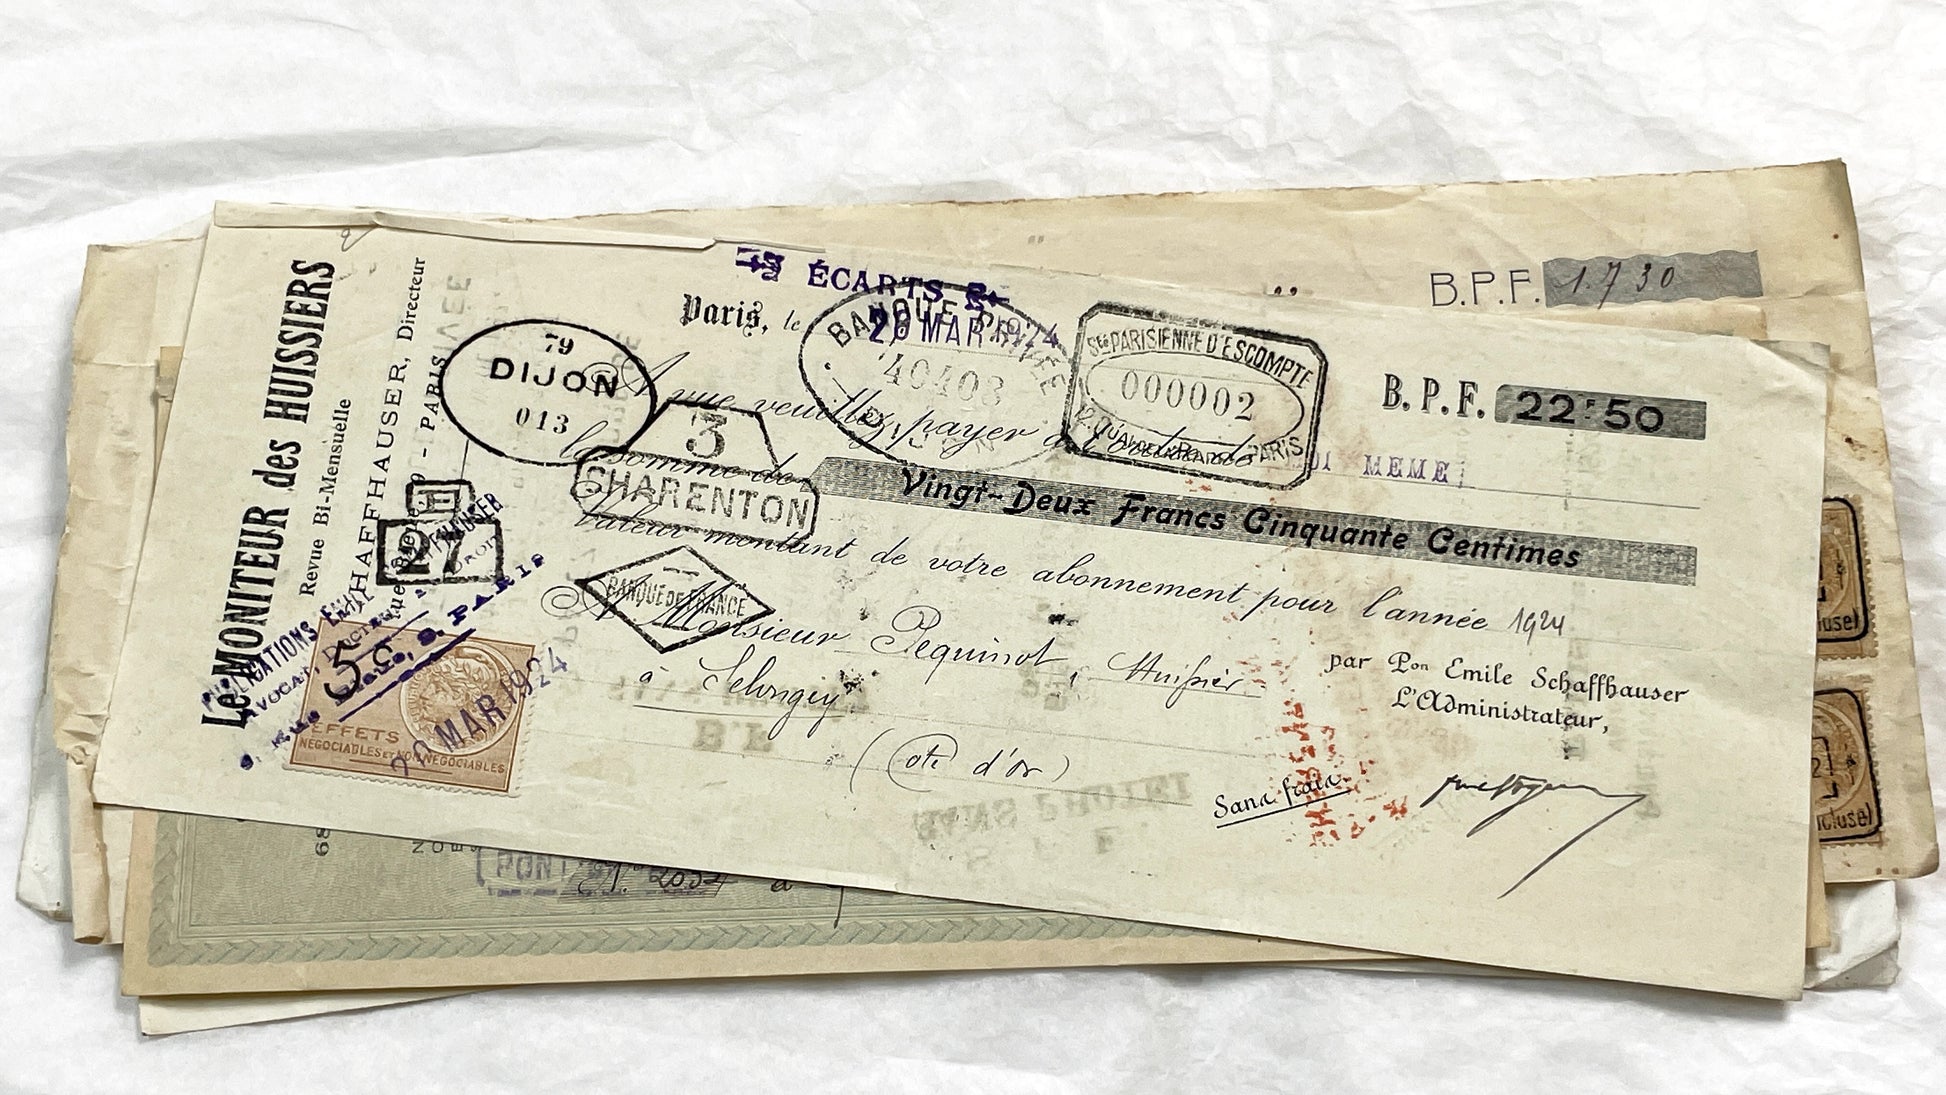 B.P.F. 1.730
Le MONITEUR des HUISSIERS
Revue Bi-Mensuelle
SCHAFFHAUSER, Directeur
PARIS
ÉCARTS
Paris, le
20 MAR 1924
BANQUE PRIVÉE
40408
DIJON
Sté PARISIENNE D'ESCOMPTE
000002
PARIS
B.P.F. 22F50
79
DIJON
013
A vue veuillez payer à l'ordre de
MEME
la somme de
Vingt-Deux Francs Cinquante Centimes
3
CHARENTON
Valeur montant de votre abonnement pour l'année 1924
BANQUE DE FRANCE
A Monsieur Pequinot, Huissier
à Selongey
(Côte d'or)
par Pon Emile Schaffhauser
L'Administrateur,
Sans frais
R7
AVOCAT, DIRECTEUR
PARIS
5c
EFFETS
NÉGOCIABLES ET NON NÉGOCIABLES
20 MAR 1924
PONT